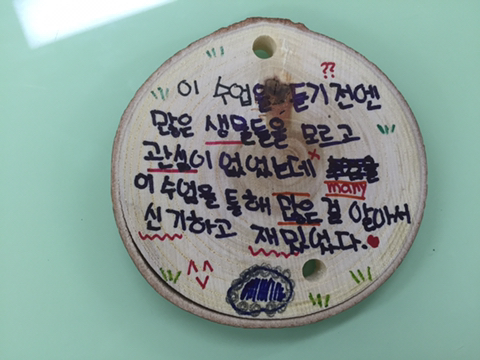 ??
이 수업을 듣기 전엔
많은 생물들을 모르고
관심이 없었는데
many
이 수업을 통해 많은 걸 알아서
신기하고 재밌었다.